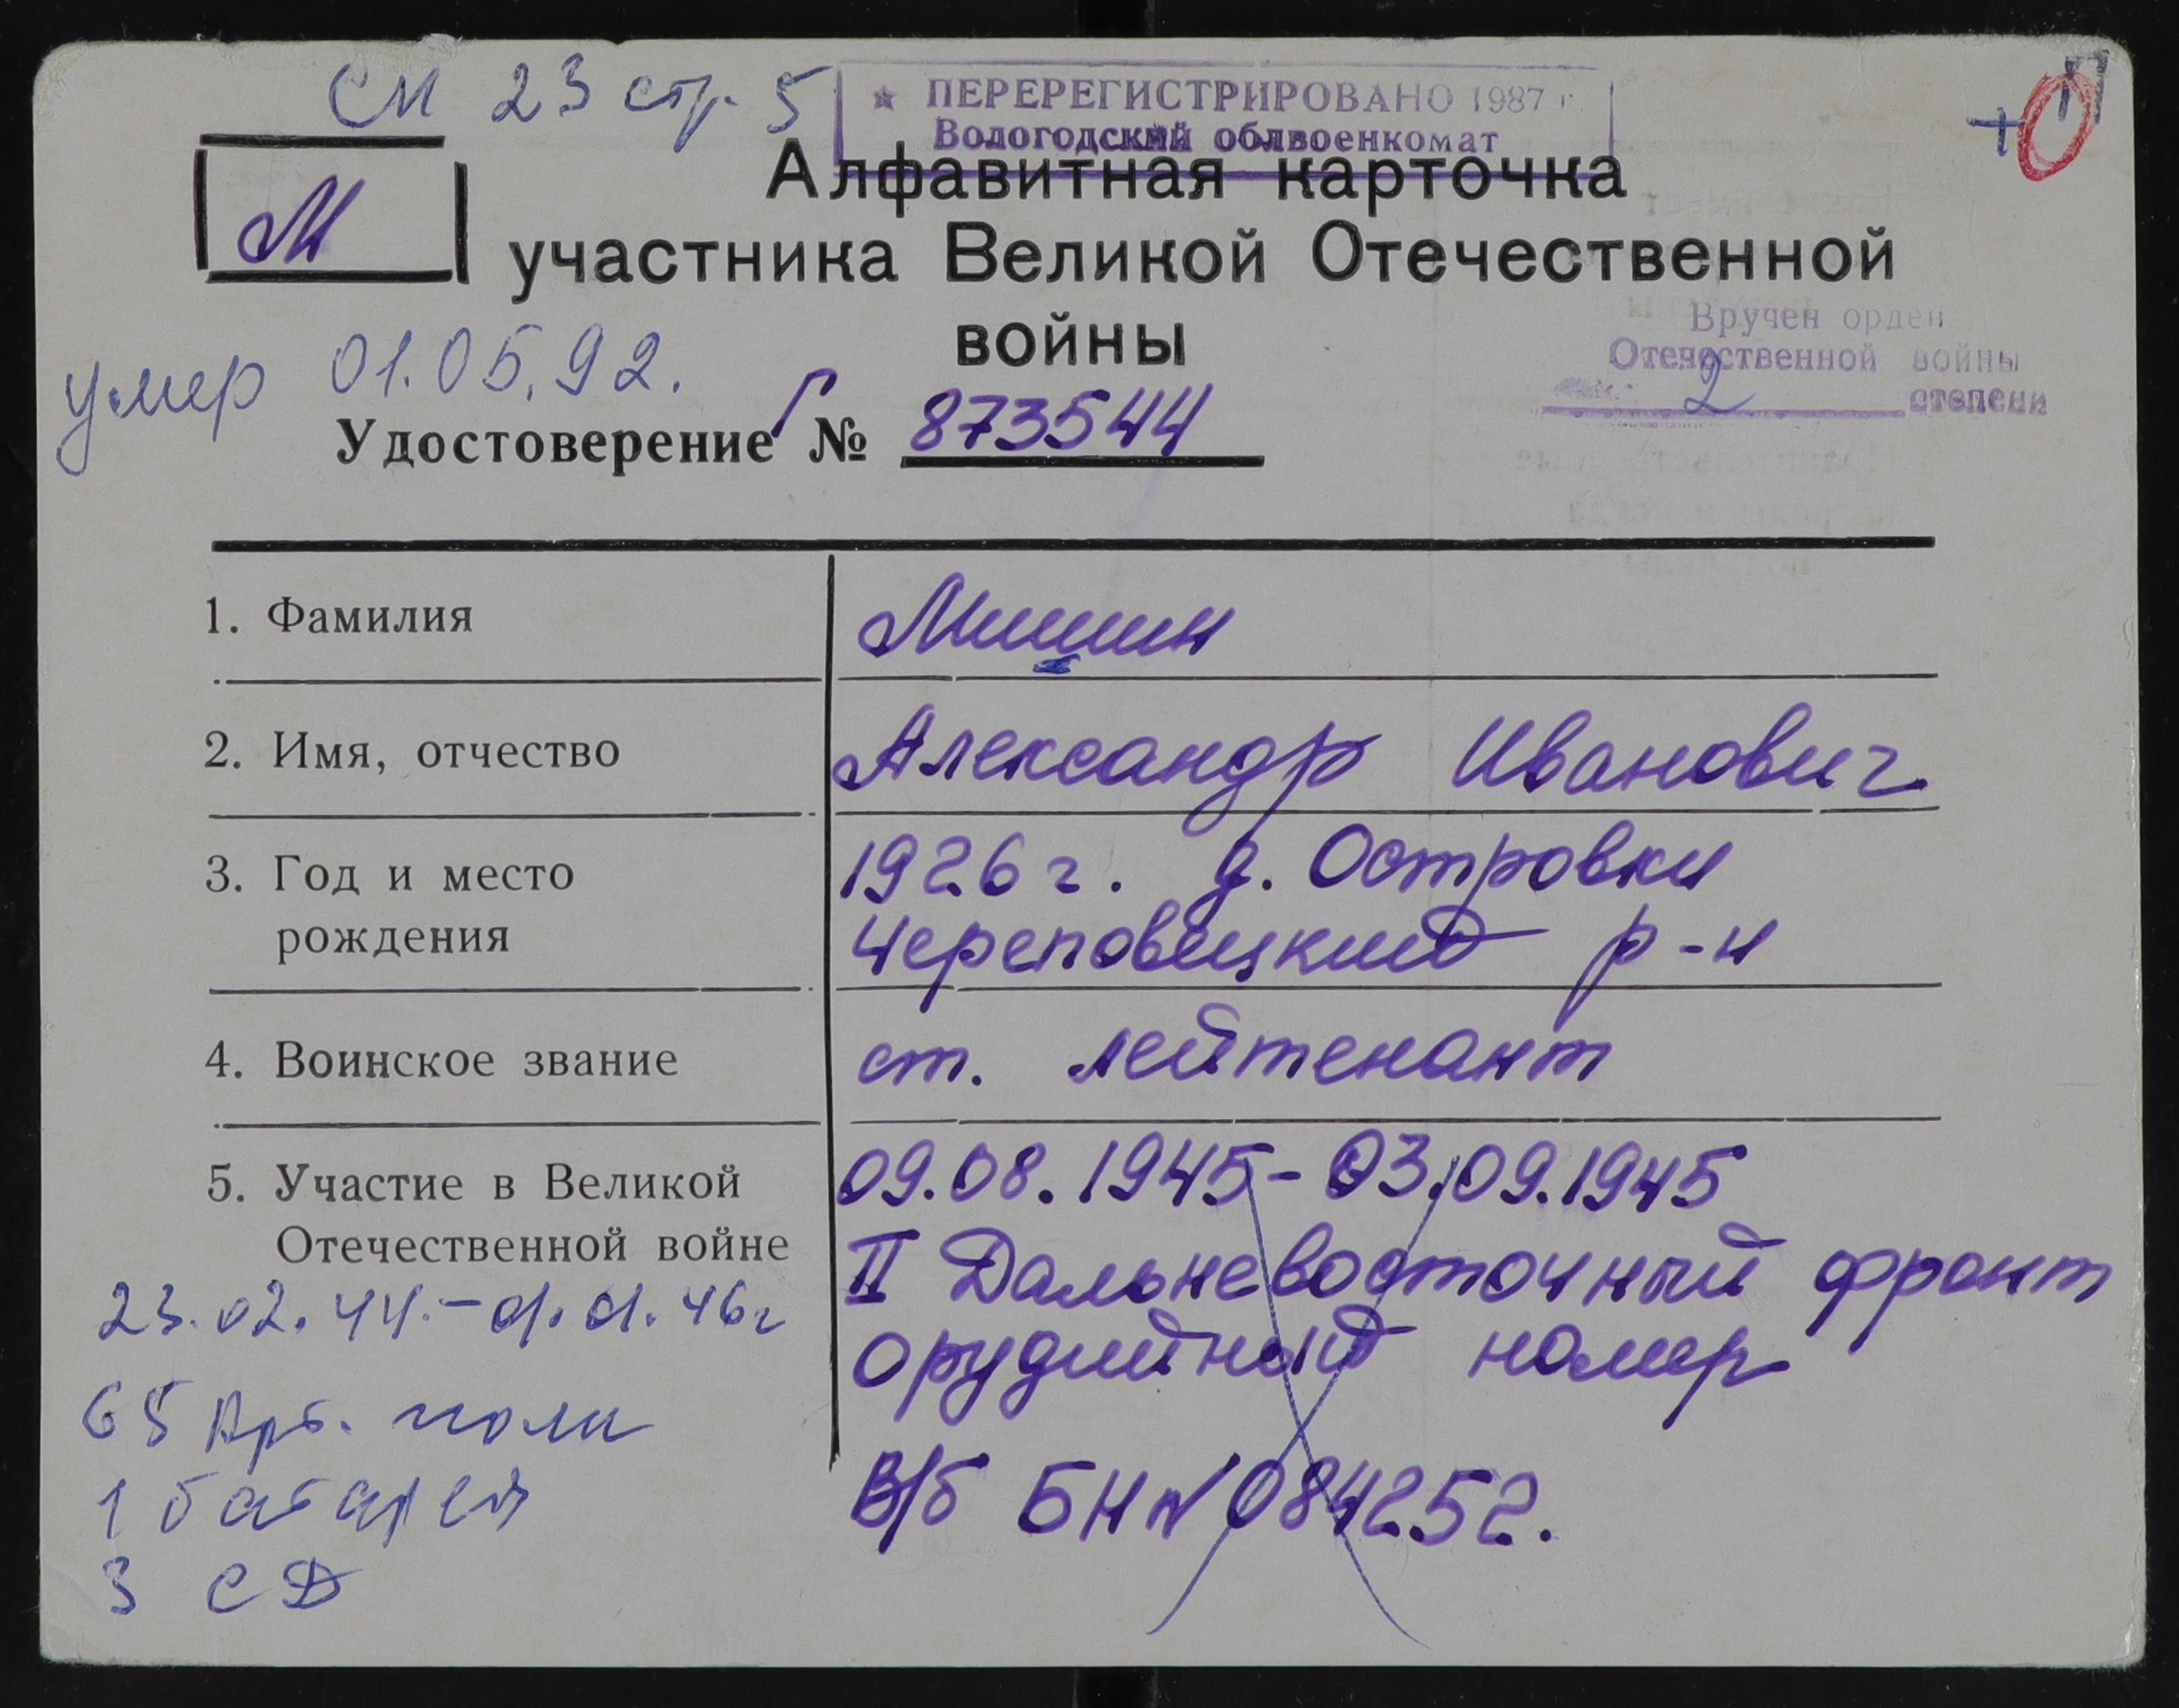 см 23 стр. 5
★ ПЕРЕРЕГИСТРИРОВАНО 1987 г.
Вологодский облвоенкомат
М
Алфавитная карточка
участника Великой Отечественной
войны
Вручен орден
Отечественной войны
2 степени
умер 01.05.92.
Удостоверение Г № 873544
1. Фамилия Мишин
2. Имя, отчество Александр Иванович
3. Год и место 1926 г. д. Островки
рождения Череповецкий р-н
4. Воинское звание ст. лейтенант
5. Участие в Великой 09.08.1945 - 03.09.1945
Отечественной войне II Дальневосточный фронт
орудийный номер
В/б БН № 084252.
23.02.44. - 01.01.46г
65 Арт. полк
1 батарея
3 СД